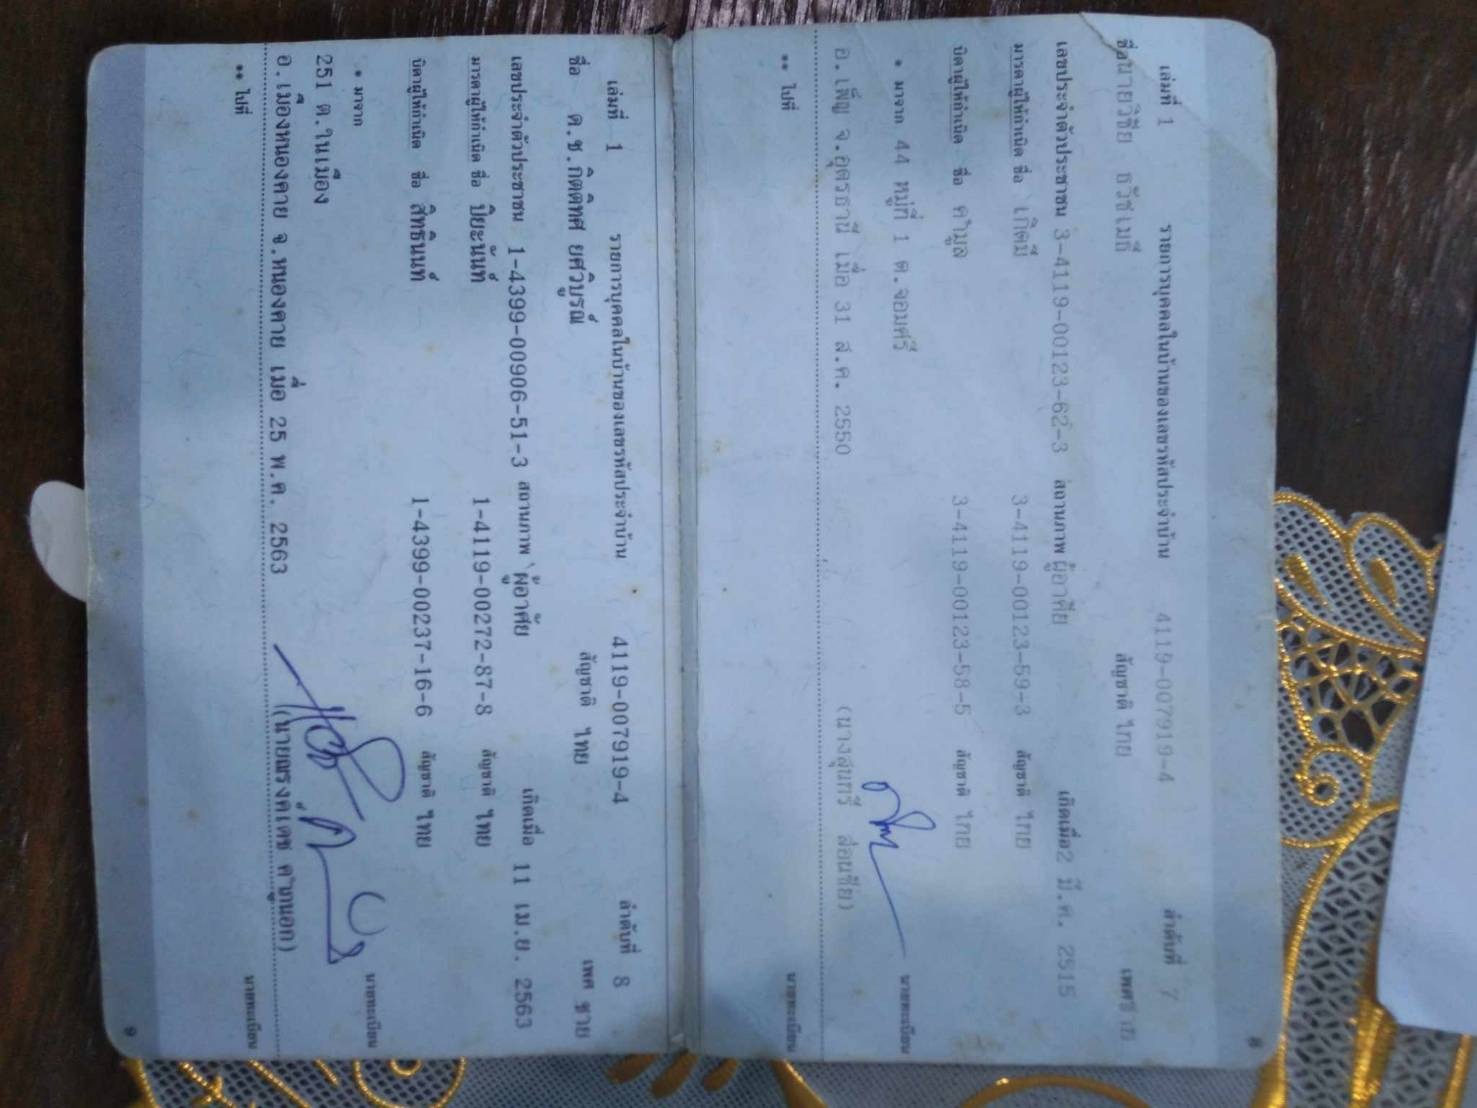 เล่มที่ 1 รายการบุคคลในบ้านของเลขรหัสประจำบ้าน 4119-007919-4 ลำดับที่ 7
ชื่อ นายวิชัย ธวัชเมธี สัญชาติ ไทย เพศ ชาย
เลขประจำตัวประชาชน 3-4119-00123-62-3 สถานภาพ ผู้อาศัย เกิดเมื่อ 2 มี.ค. 2515
มารดาผู้ให้กำเนิด ชื่อ เกิดมี 3-4119-00123-59-3 สัญชาติ ไทย
บิดาผู้ให้กำเนิด ชื่อ คำมูล 3-4119-00123-58-5 สัญชาติ ไทย
* มาจาก 44 หมู่ที่ 1 ต.จอมศรี
นายทะเบียน
อ.เพ็ญ จ.อุดรธานี เมื่อ 31 ส.ค. 2550 (นางสุนทรี สอนชัย)
** ไปที่
นายทะเบียน
8
เล่มที่ 1 รายการบุคคลในบ้านของเลขรหัสประจำบ้าน 4119-007919-4 ลำดับที่ 8
ชื่อ ด.ช.กิตติทศ ยศวิบูรณ์ สัญชาติ ไทย เพศ ชาย
เลขประจำตัวประชาชน 1-4399-00906-51-3 สถานภาพ ผู้อาศัย เกิดเมื่อ 11 เม.ย. 2563
มารดาผู้ให้กำเนิด ชื่อ ปิยะนันท์ 1-4119-00272-87-8 สัญชาติ ไทย
บิดาผู้ให้กำเนิด ชื่อ สิทธินนท์ 1-4399-00237-16-6 สัญชาติ ไทย
* มาจาก
นายทะเบียน
251 ต.ในเมือง
อ.เมืองหนองคาย จ.หนองคาย เมื่อ 25 พ.ค. 2563 (นายณรงค์เดช
** ไปที่
นายทะเบียน
9